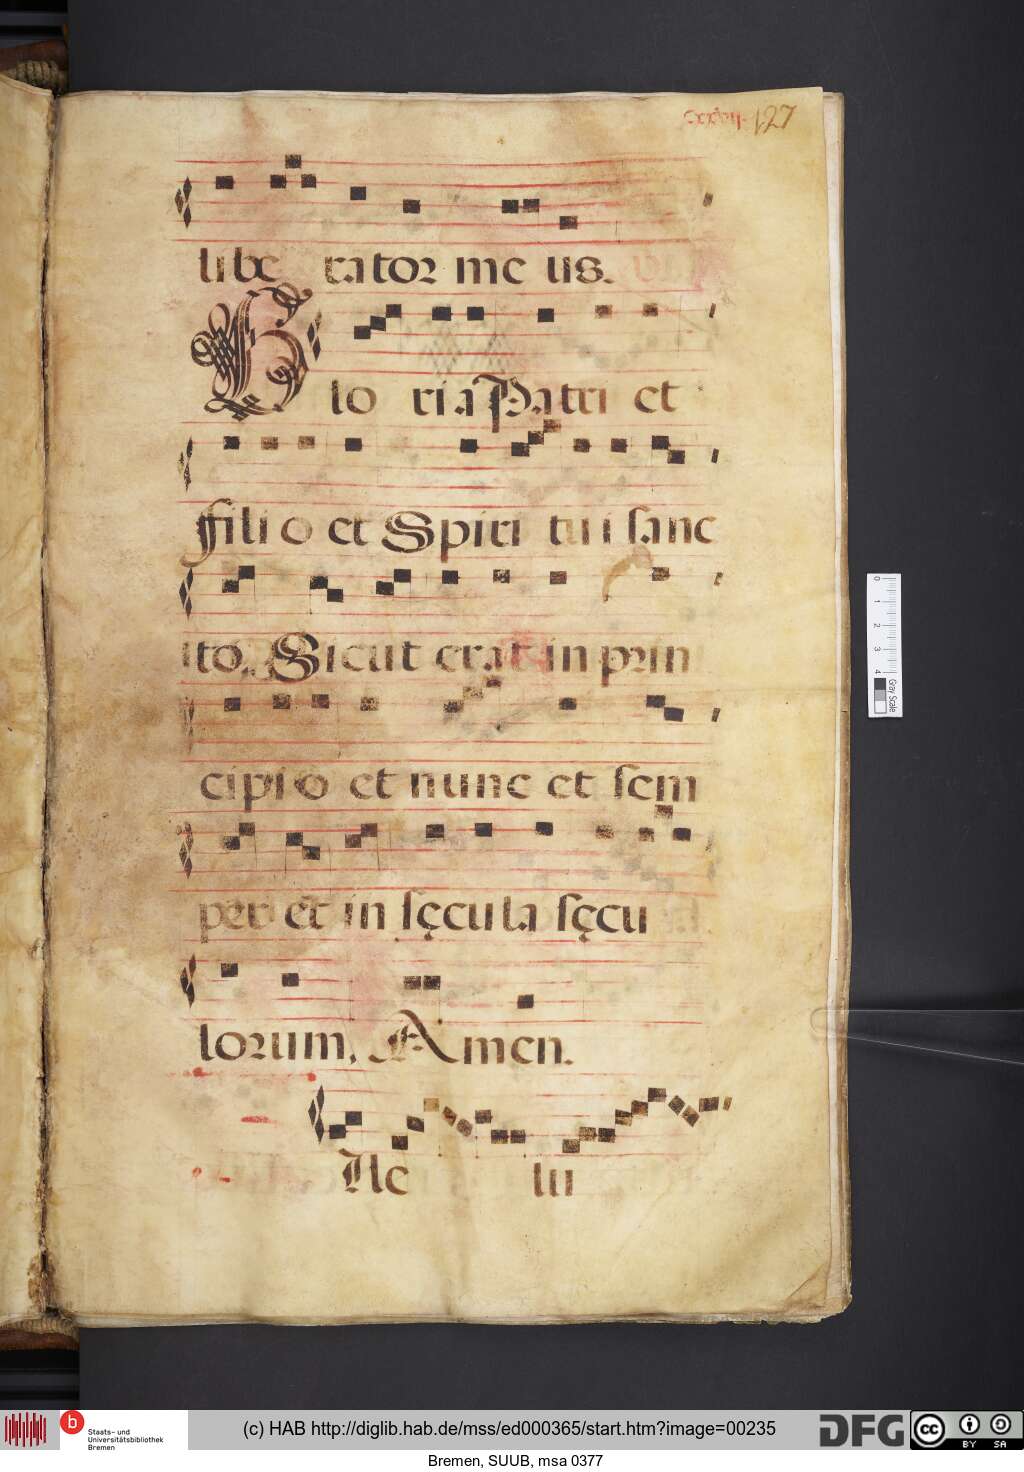 cxxvii. 127
libe rator me us.
Glo ria Patri et
filio et Spiri tui sanc
to. Sicut erat in prin
cipio et nunc et sem
per et in sęcula sęcu
lorum, Amen.
Alle lu
0 1 2 3 4
Gray Scale
b Staats- und
Universitätsbibliothek
Bremen
(c) HAB http://diglib.hab.de/mss/ed000365/start.htm?image=00235
DFG
cc BY SA
Bremen, SUUB, msa 0377